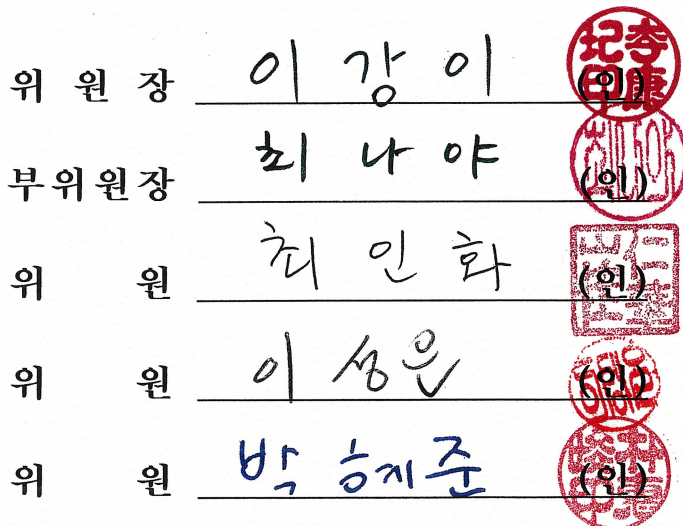 위 원 장 이 강 이 (인)
부위원장 최 나 야 (인)
위 원 최 인 화 (인)
위 원 이 성 은 (인)
위 원 박 혜 준 (인)